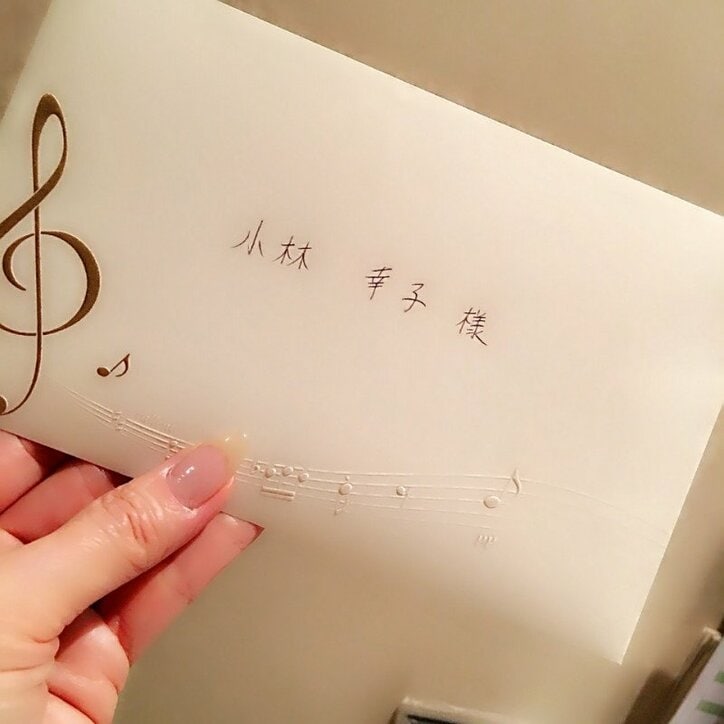 小林 幸子 様